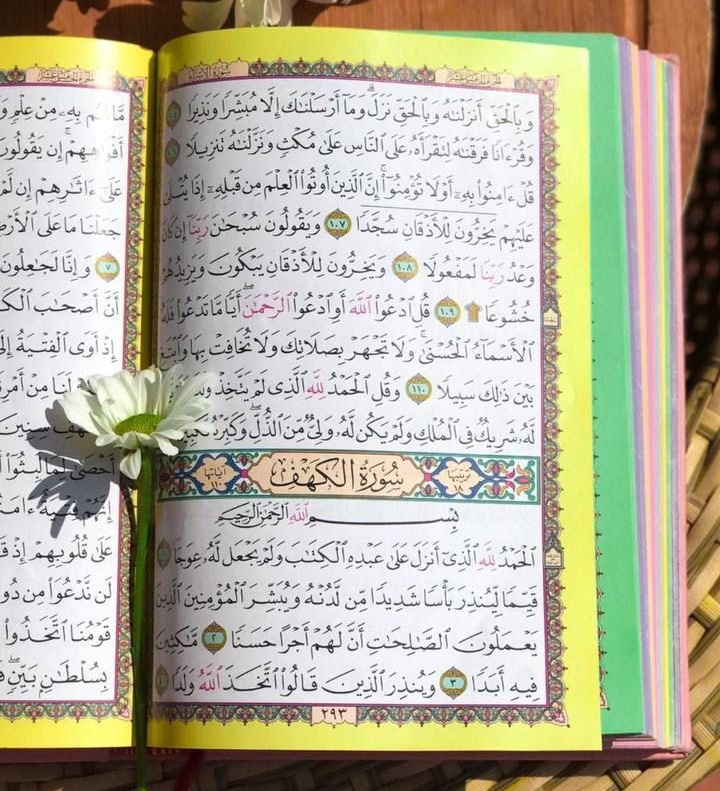 سُورَةُ الإِسْرَاءِ
وَبِٱلْحَقِّ أَنزَلْنَٰهُ وَبِٱلْحَقِّ نَزَلَ ۗ وَمَآ أَرْسَلْنَٰكَ إِلَّا مُبَشِّرًا وَنَذِيرًا
وَقُرْءَانًا فَرَقْنَٰهُ لِتَقْرَأَهُۥ عَلَى ٱلنَّاسِ عَلَىٰ مُكْثٍ وَنَزَّلْنَٰهُ تَنزِيلًا
قُلْ ءَامِنُوا۟ بِهِۦٓ أَوْ لَا تُؤْمِنُوٓا۟ ۚ إِنَّ ٱلَّذِينَ أُوتُوا۟ ٱلْعِلْمَ مِن قَبْلِهِۦٓ إِذَا يُتْلَىٰ
عَلَيْهِمْ يَخِرُّونَ لِلْأَذْقَانِ سُجَّدًا ١٠٧ وَيَقُولُونَ سُبْحَٰنَ رَبِّنَآ إِن كَانَ
وَعْدُ رَبِّنَا لَمَفْعُولًا ١٠٨ وَيَخِرُّونَ لِلْأَذْقَانِ يَبْكُونَ وَيَزِيدُهُمْ
خُشُوعًا ١٠٩ قُلِ ٱدْعُوا۟ ٱللَّهَ أَوِ ٱدْعُوا۟ ٱلرَّحْمَٰنَ ۖ أَيًّا مَّا تَدْعُوا۟ فَلَهُ
ٱلْأَسْمَآءُ ٱلْحُسْنَىٰ ۚ وَلَا تَجْهَرْ بِصَلَاتِكَ وَلَا تُخَافِتْ بِهَا وَٱبْتَغِ
بَيْنَ ذَٰلِكَ سَبِيلًا ١١٠ وَقُلِ ٱلْحَمْدُ لِلَّهِ ٱلَّذِى لَمْ يَتَّخِذْ
لَّهُۥ شَرِيكٌ فِى ٱلْمُلْكِ وَلَمْ يَكُن لَّهُۥ وَلِىٌّ مِّنَ ٱلذُّلِّ ۖ وَكَبِّرْهُ تَكْبِيرًا
ترتيبها ١٨ سُورَةُ الكَهْفِ آياتها ١١٠
بِسْمِ ٱللَّهِ ٱلرَّحْمَٰنِ ٱلرَّحِيمِ
ٱلْحَمْدُ لِلَّهِ ٱلَّذِىٓ أَنزَلَ عَلَىٰ عَبْدِهِ ٱلْكِتَٰبَ وَلَمْ يَجْعَل لَّهُۥ عِوَجَا
قَيِّمًا لِّيُنذِرَ بَأْسًا شَدِيدًا مِّن لَّدُنْهُ وَيُبَشِّرَ ٱلْمُؤْمِنِينَ ٱلَّذِينَ
يَعْمَلُونَ ٱلصَّٰلِحَٰتِ أَنَّ لَهُمْ أَجْرًا حَسَنًا ٢ مَّٰكِثِينَ
فِيهِ أَبَدًا ٣ وَيُنذِرَ ٱلَّذِينَ قَالُوا۟ ٱتَّخَذَ ٱللَّهُ وَلَدًا
٢٩٣
مَّا لَهُم بِهِۦ مِنْ عِلْمٍ
أَفْوَٰهِهِمْ ۚ إِن يَقُولُونَ
عَلَىٰٓ ءَاثَٰرِهِمْ إِن لَّمْ
جَعَلْنَا مَا عَلَى ٱلْأَرْضِ
٧ وَإِنَّا لَجَٰعِلُونَ
أَنَّ أَصْحَٰبَ
إِذْ أَوَى ٱلْفِتْيَةُ
لَنَا مِنْ
سِنِينَ
أَحْصَىٰ لِمَا لَبِثُوٓا۟
إِنَّهُمْ فِتْيَةٌ
عَلَىٰ قُلُوبِهِمْ إِذْ
لَن نَّدْعُوَا۟ مِن
قَوْمُنَا ٱتَّخَذُوا۟
بِسُلْطَٰنٍۭ بَيِّنٍ ۖ